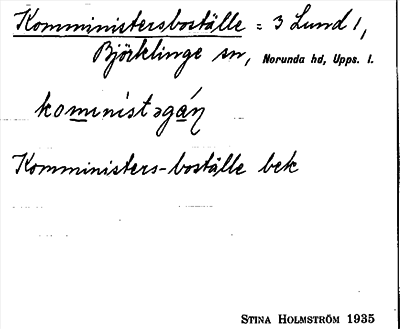 Komministersboställe = 3 Lund 1,
Björklinge sn, Norunda hd, Upps. l.
kominist əgáṇ
Komministers-boställe bek
STINA HOLMSTRÖM 1935